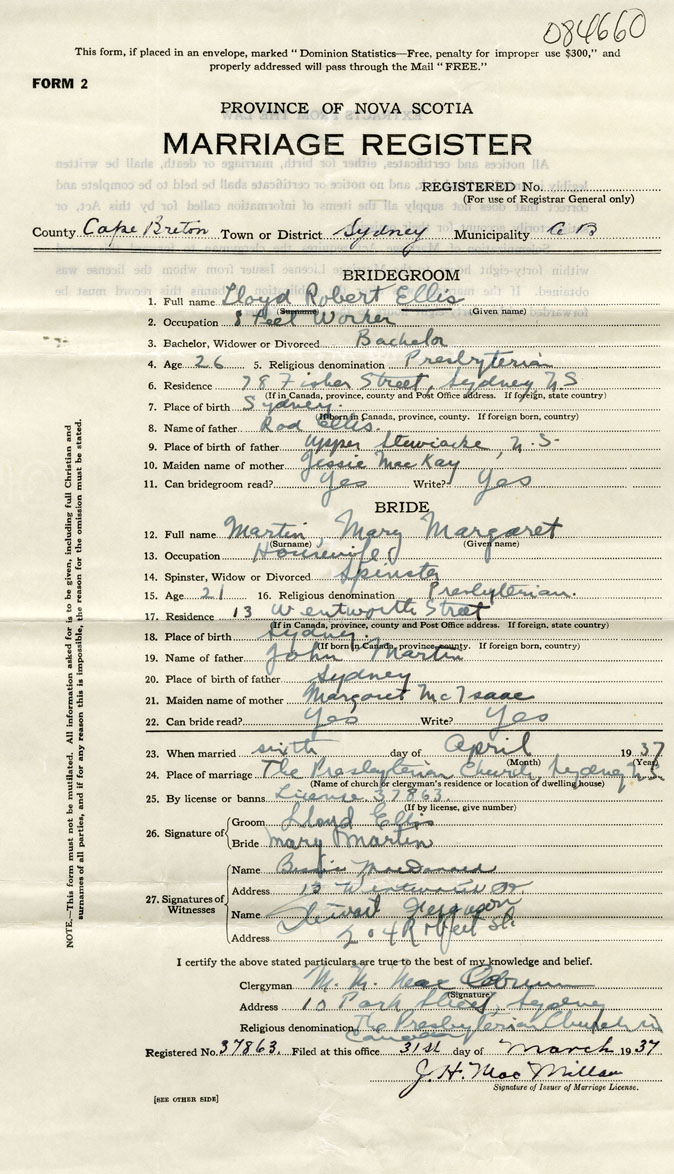 084660
This form, if placed in an envelope, marked "Dominion Statistics—Free, penalty for improper use $300," and
properly addressed will pass through the Mail "FREE."
FORM 2
PROVINCE OF NOVA SCOTIA
MARRIAGE REGISTER
REGISTERED No.
(For use of Registrar General only)
County Cape Breton Town or District Sydney Municipality C B
BRIDEGROOM
1. Full name Lloyd Robert Ellis
(Surname) (Given name)
2. Occupation Steel Worker
3. Bachelor, Widower or Divorced Bachelor
4. Age 26 5. Religious denomination Presbyterian
6. Residence 78 Fisher Street, Sydney N S
(If in Canada, province, county and Post Office address. If foreign, state country)
7. Place of birth Sydney.
(If born in Canada, province, county. If foreign born, country)
8. Name of father Rod Ellis.
9. Place of birth of father Upper Stewiacke, N.S.
10. Maiden name of mother Jessie MacKay
11. Can bridegroom read? Yes Write? Yes
BRIDE
12. Full name Martin, Mary Margaret
(Surname) (Given name)
13. Occupation Housewife
14. Spinster, Widow or Divorced Spinster
15. Age 21 16. Religious denomination Presbyterian.
17. Residence 13 Wentworth Street
(If in Canada, province, county and Post Office address. If foreign, state country)
18. Place of birth Sydney.
(If born in Canada, province, county. If foreign born, country)
19. Name of father John Martin
20. Place of birth of father Sydney
21. Maiden name of mother Margaret McIsaac
22. Can bride read? Yes Write? Yes
23. When married sixth day of April 1937
(Month) (Year)
24. Place of marriage The Presbyterian Church, Sydney N.S.
(Name of church or clergyman's residence or location of dwelling house)
25. By license or banns License 37863.
(If by license, give number)
26. Signature of
Groom Lloyd Ellis
Bride Mary Martin
27. Signatures of Witnesses
Name MacDonald
Address 13
Name Stewart Ferguson
Address 204
I certify the above stated particulars are true to the best of my knowledge and belief.
Clergyman M. M. Mac
(Signature)
Address 10 Park Street, Sydney
Religious denomination The Presbyterian Church in
Canada
Registered No. 37863. Filed at this office 31st day of March 1937
J. H. MacMillan
Signature of Issuer of Marriage License.
[SEE OTHER SIDE]
NOTE.—This form must not be mutilated. All information asked for is to be given, including full Christian and
surnames of all parties, and if for any reason this is impossible, the reason for the omission must be stated.